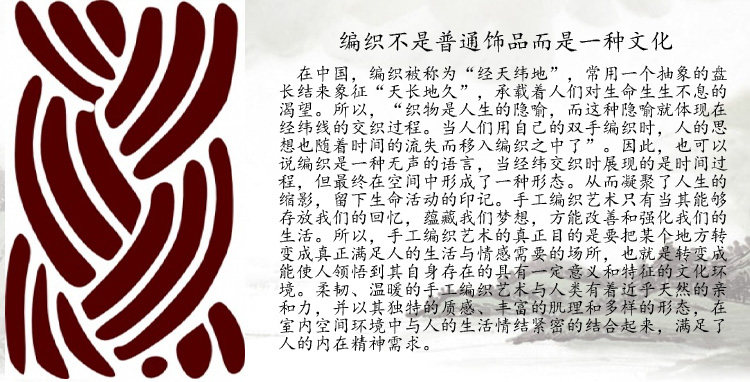 编织不是普通饰品而是一种文化
在中国，编织被称为“经天纬地”，常用一个抽象的盘
长结来象征“天长地久”，承载着人们对生命生生不息的
渴望。所以，“织物是人生的隐喻，而这种隐喻就体现在
经纬线的交织过程。当人们用自己的双手编织时，人的思
想也随着时间的流失而移入编织之中了”。因此，也可以
说编织是一种无声的语言，当经纬交织时展现的是时间过
程，但最终在空间中形成了一种形态。从而凝聚了人生的
缩影，留下生命活动的印记。手工编织艺术只有当其能够
存放我们的回忆，蕴藏我们梦想，方能改善和强化我们的
生活。所以，手工编织艺术的真正目的是要把某个地方转
变成真正满足人的生活与情感需要的场所，也就是转变成
能使人领悟到其自身存在的具有一定意义和特征的文化环
境。柔韧、温暖的手工编织艺术与人类有着近乎天然的亲
和力，并以其独特的质感、丰富的肌理和多样的形态，在
室内空间环境中与人的生活情结紧密的结合起来，满足了
人的内在精神需求。